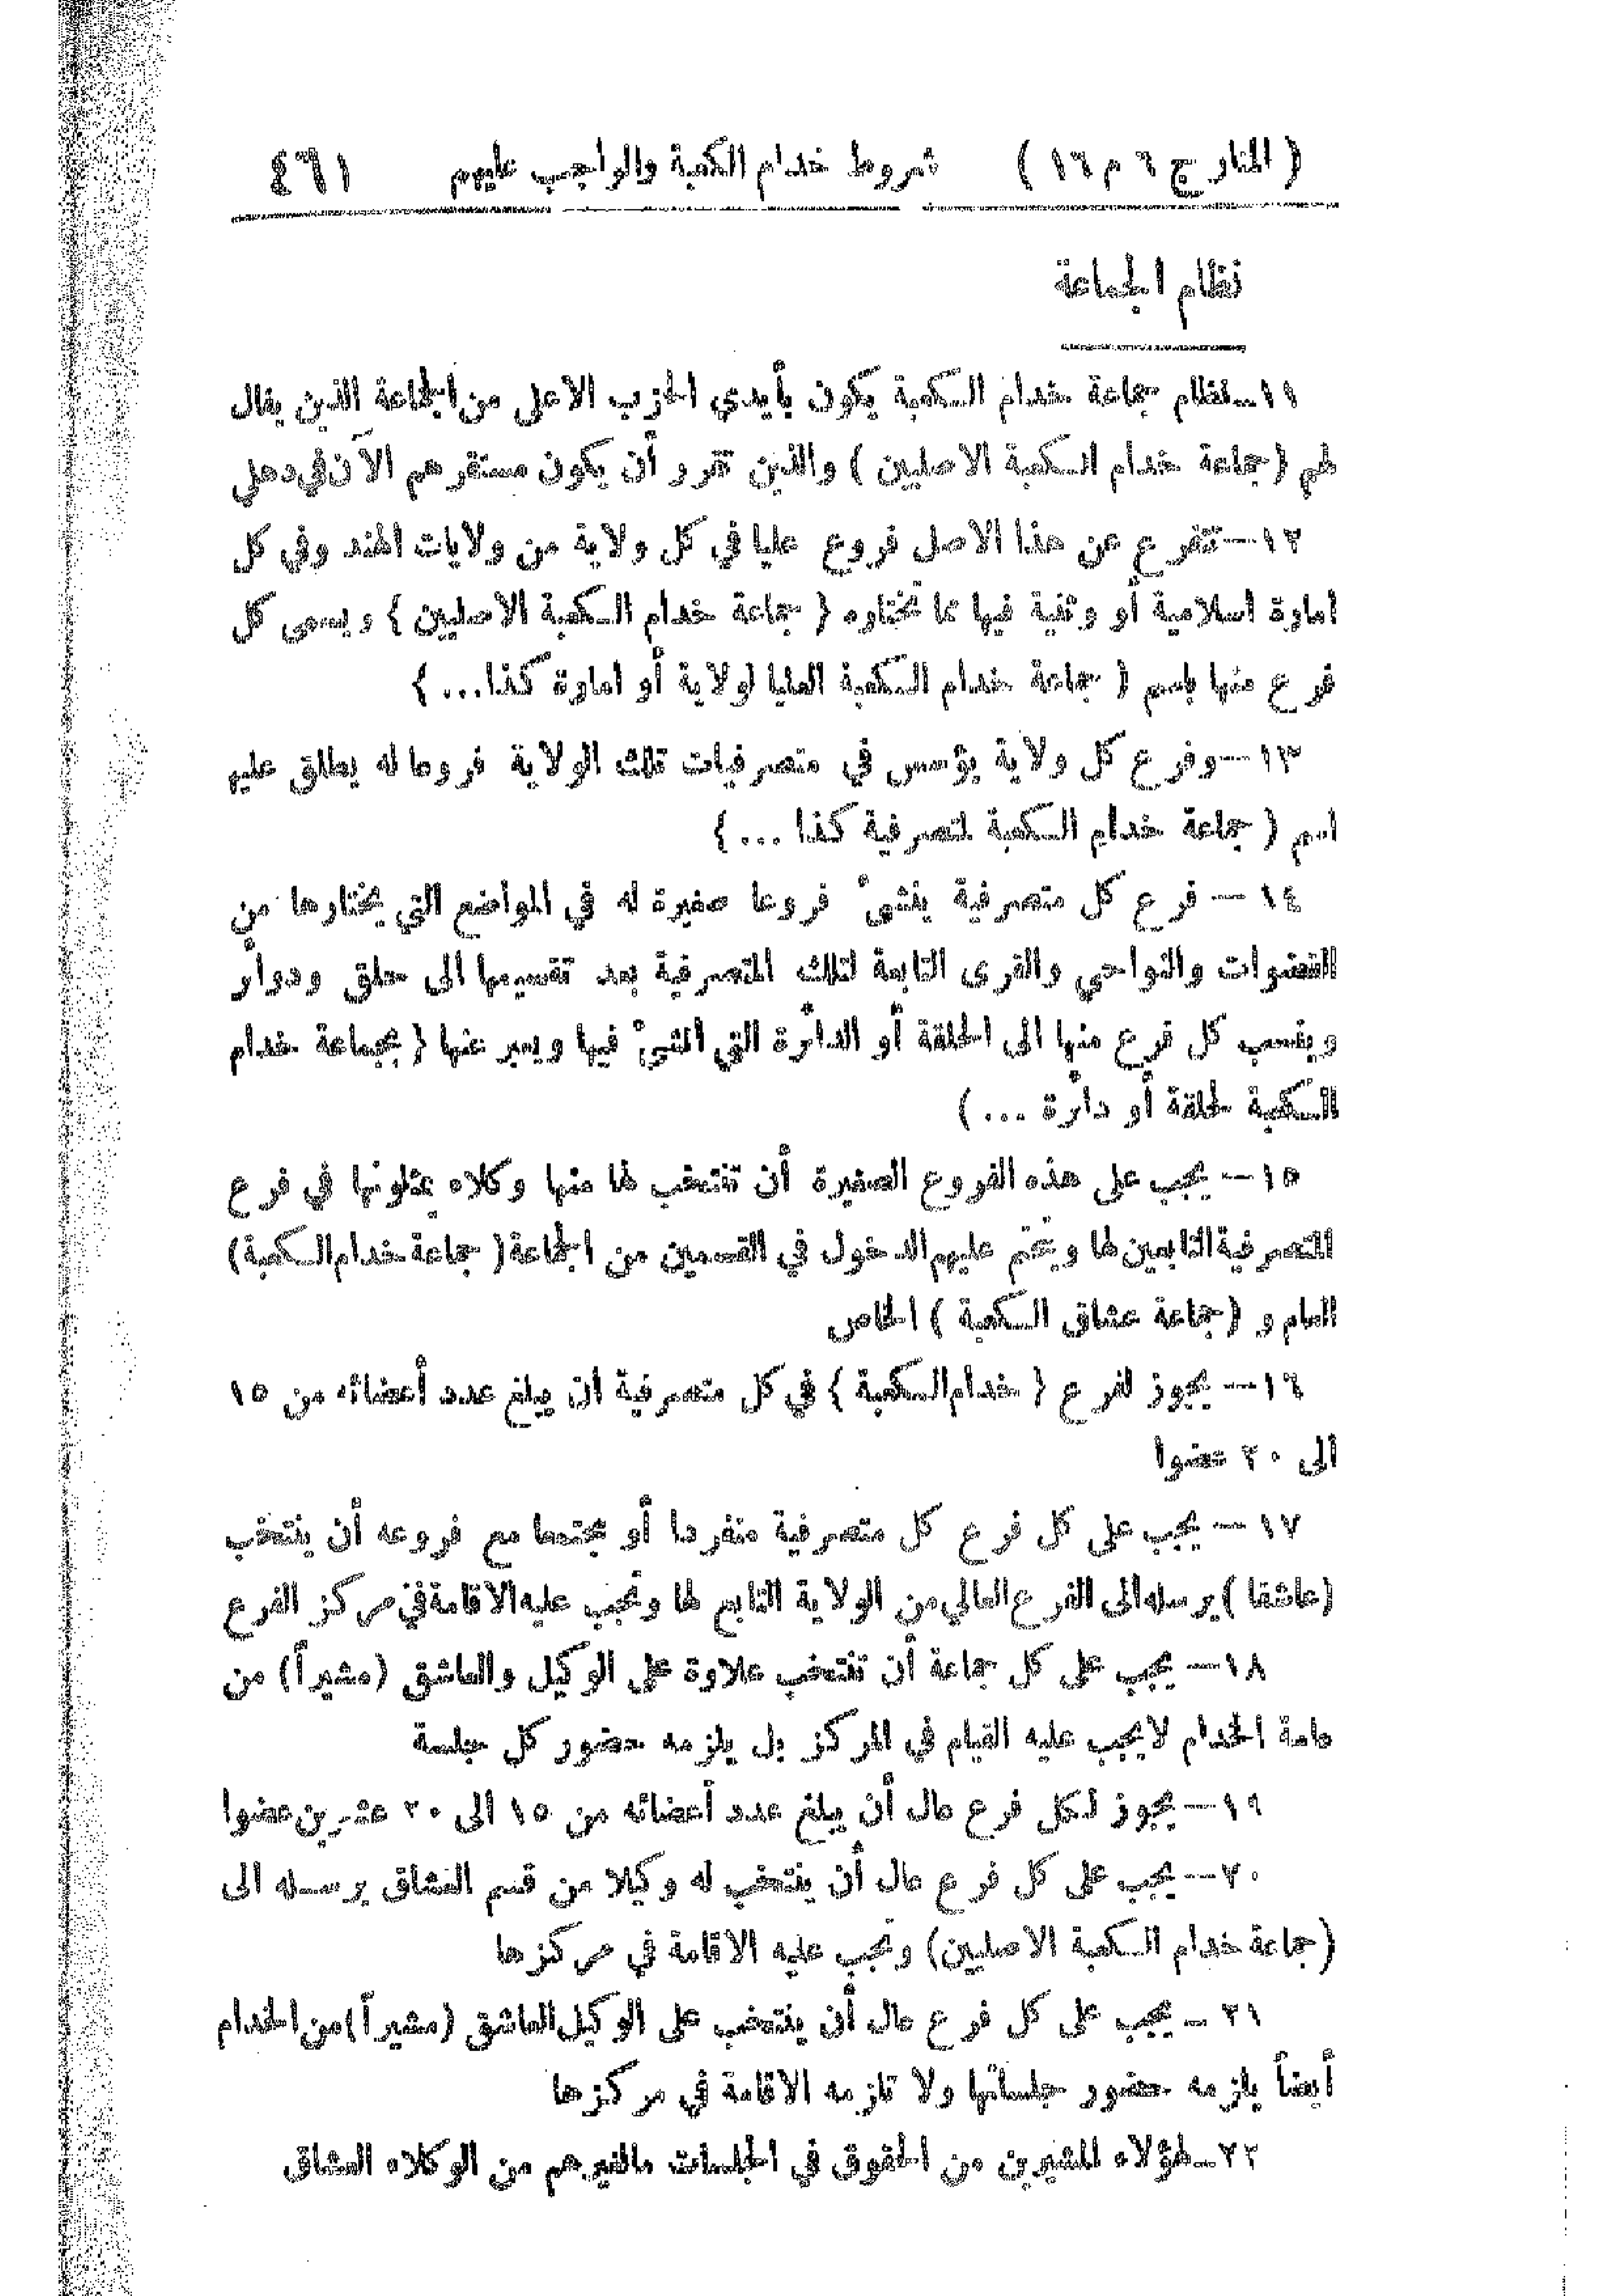 ( المنار ج ٦ م ١٦ ) شروط خدام الكعبة والواجب عليهم ٤٦١
نظام الجماعة
١١ــ نظام جماعة خدام الكعبة يكون بأيدي الحزب الاعلى من الجماعة الذين يقال
لهم (جماعة خدام الكعبة الاصليين ) والذين تقرر أن يكون مستقرهم الآن في دهلي
١٢ — تتفرع عن هذا الاصل فروع عليا في كل ولاية من ولايات الهند وفي كل
امارة اسلامية أو وثنية فيها مما تختاره ( جماعة خدام الكعبة الاصليين ) ويسمى كل
فرع منها باسم ( جماعة خدام الكعبة العليا لولاية أو امارة كذا... )
١٣ — وفرع كل ولاية يؤسس في متصرفيات تلك الولاية فروعا له يطلق عليها
اسم ( جماعة خدام الكعبة لمتصرفية كذا ... )
١٤ — فرع كل متصرفية ينشئ فروعا صغيرة له في المواضع التي يختارها من
القضوات والنواحي والقرى التابعة لتلك المتصرفية بعد تقسيمها الى حلق ودوائر
وينسب كل فرع منها الى الحلقة أو الدائرة التي انشئ فيها ويعبر عنها ( بجماعة خدام
الكعبة لحلقة أو دائرة ... )
١٥ — يجب على هذه الفروع الصغيرة أن تنتخب لها منها وكلاء يمثلونها في فرع
المتصرفية التابعين لها ويتحتم عليهم الدخول في القسمين من الجماعة ( جماعة خدام الكعبة )
العام و ( جماعة عشاق الكعبة ) الخاص
١٦ — يجوز لفرع ( خدام الكعبة ) في كل متصرفية ان يبلغ عدد أعضائه من ١٥
الى ٢٠ عضوا
١٧ — يجب على كل فرع كل متصرفية منفردا أو مجتمعا مع فروعه أن ينتخب
(عاشقا ) يرسله الى الفرع العالي من الولاية التابع لها وتجب عليه الاقامة في مركز الفرع
١٨ — يجب على كل جماعة أن تنتخب علاوة على الوكيل والعاشق (مشيراً) من
عامة الخدام لا يجب عليه القيام في المركز بل يلزمه حضور كل جلسة
١٩ — يجوز لكل فرع عال أن يبلغ عدد أعضائه من ١٥ الى ٢٠ عشرين عضوا
٢٠ — يجب على كل فرع عال أن ينتخب له وكيلا من قسم العشاق يرسله الى
(جماعة خدام الكعبة الاصليين) وتجب عليه الاقامة في مركزها
٢١ — يجب على كل فرع عال أن ينتخب على الوكيل العاشق (مشيراً) من الخدام
أيضاً يلزمه حضور جلساتها ولا تلزمه الاقامة في مركزها
٢٢ــ لهؤلاء المشيرين من الحقوق في الجلسات مالغيرهم من الوكلاء العشاق